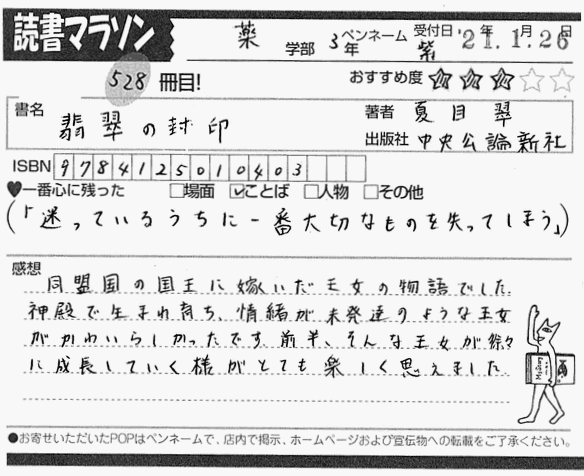 読書マラソン
薬 学部 3年 ペンネーム 紫 受付日 '21年 1月 26日
528 冊目!
おすすめ度 ★★★☆☆
書名 翡翠の封印
著者 夏目 翠
出版社 中央公論新社
ISBN 9784125010403
♥一番心に残った □場面 ☑ことば □人物 □その他
(「迷っているうちに一番大切なものを失ってしまう」)
感想
同盟国の国王に嫁いだ王女の物語でした.
神殿で生まれ育ち、情緒が未発達のような王女
がかわいらしかったです. 前半、そんな王女が徐々
に成長していく様がとても楽しく思えました.
●お寄せいただいたPOPはペンネームで、店内で掲示、ホームページおよび宣伝物への転載をご了承ください。